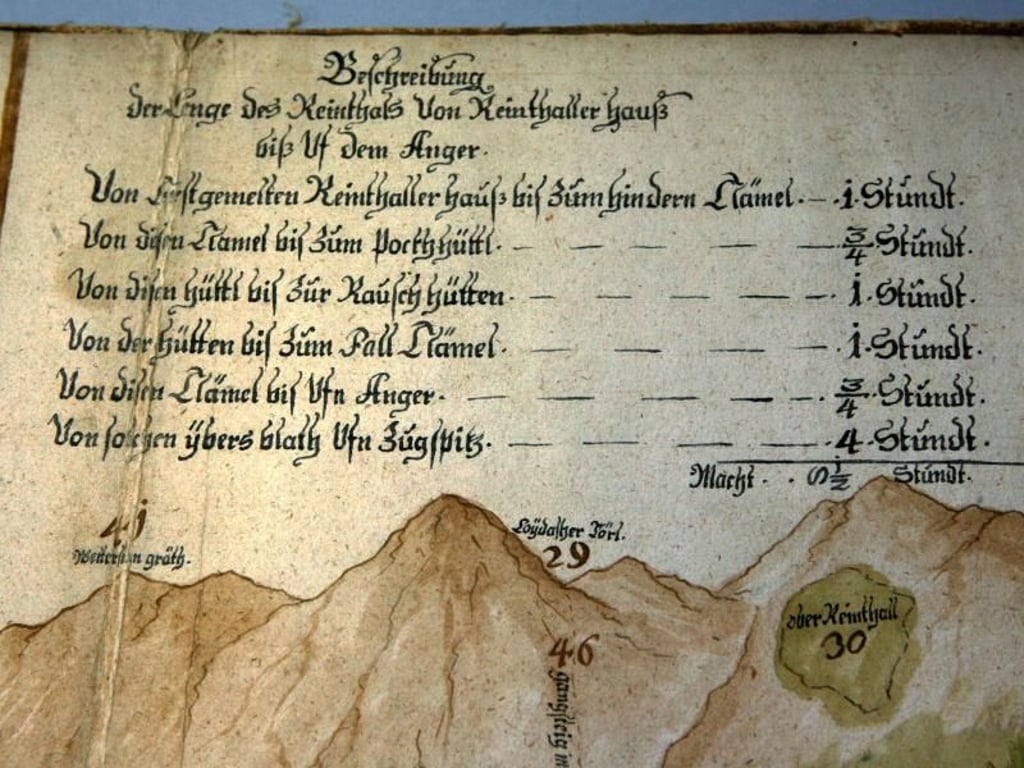 Beschreibung
der Enge des Reinthals Von Reinthaller hauß
biß Uf dem Anger.
Von Erstgemelten Reinthaller hauß biß Zum hindern Clämel. — 1. Stundt.
Von disen Clamel biß Zum Pockh hüttl. — — — — ¾ Stundt.
Von disen hüttl biß Zur Rausch hütten. — — — — 1. Stundt.
Von der hütten biß Zum Fall Clämel. — — — — 1. Stundt.
Von disen Clämel biß Ufn Anger. — — — — — ¾ Stundt.
Von solchen ÿbers blath Ufn Zugspitz. — — — — 4 Stundt.
Macht. . 8½ Stundt.
41
gräth.
Loÿdascher Törl.
29
ober Reinthall
30
46
gangsteig in